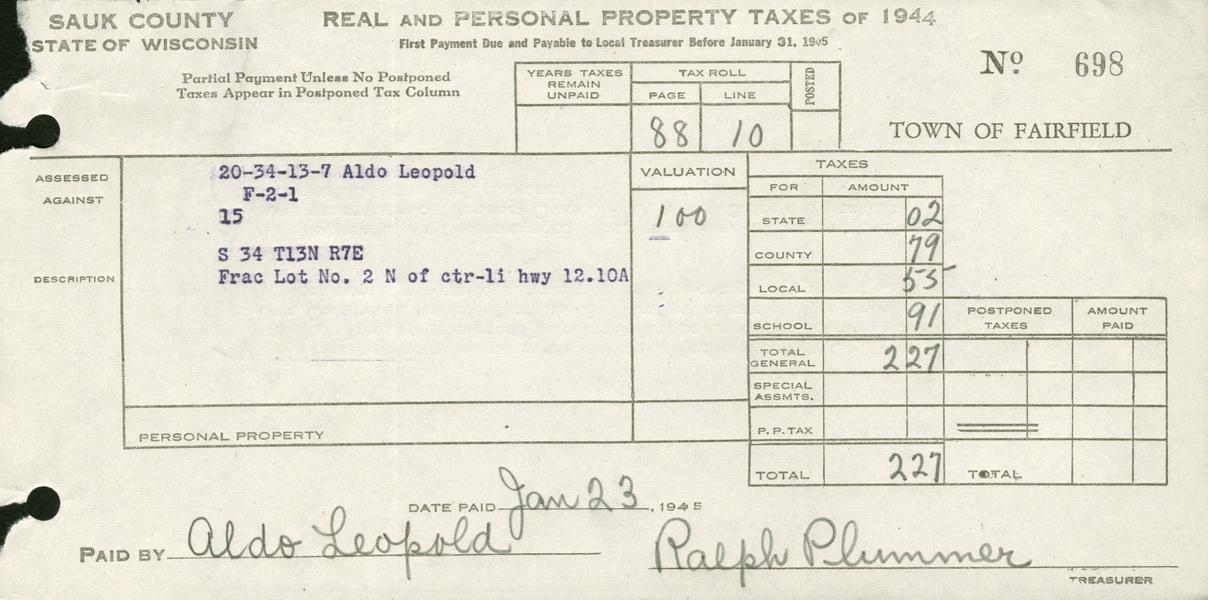 SAUK COUNTY
STATE OF WISCONSIN
REAL AND PERSONAL PROPERTY TAXES OF 1944
First Payment Due and Payable to Local Treasurer Before January 31, 1945
Partial Payment Unless No Postponed
Taxes Appear in Postponed Tax Column
YEARS TAXES
REMAIN
UNPAID
TAX ROLL
PAGE LINE
88 10
POSTED
No 698
TOWN OF FAIRFIELD
ASSESSED
AGAINST
20-34-13-7 Aldo Leopold
F-2-1
15
DESCRIPTION
S 34 T13N R7E
Frac Lot No. 2 N of ctr-li hwy 12.10A
PERSONAL PROPERTY
VALUATION
100
TAXES
FOR AMOUNT
STATE 02
COUNTY 79
LOCAL 55
SCHOOL 91
POSTPONED
TAXES
AMOUNT
PAID
TOTAL
GENERAL 2 27
SPECIAL
ASSMTS.
P. P. TAX
TOTAL 2 27 TOTAL
DATE PAID Jan 23, 1945
PAID BY Aldo Leopold
Ralph Plummer
TREASURER